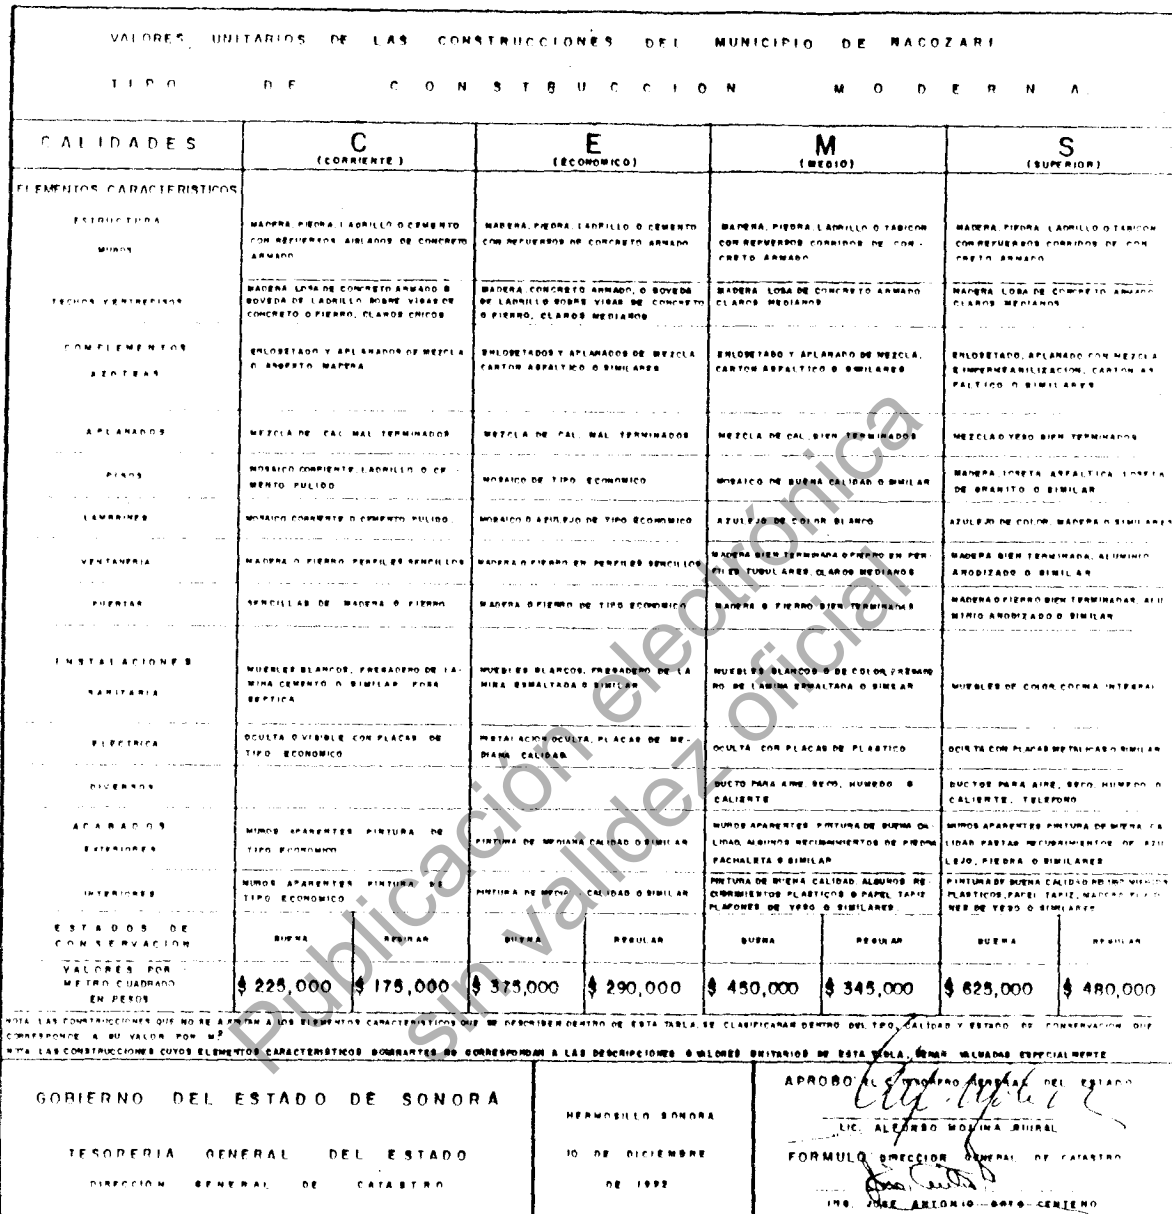 VALORES UNITARIOS DE LAS CONSTRUCCIONES DEL MUNICIPIO DE NACOZARI
TIPO DE CONSTRUCCION MODERNA
CALIDADES
C
(CORRIENTE)
E
(ECONOMICO)
M
(MEDIO)
S
(SUPERIOR)
ELEMENTOS CARACTERISTICOS
ESTRUCTURA
MUROS
MADERA, PIEDRA, LADRILLO O CEMENTO
CON REFUERSOS AISLADOS DE CONCRETO
ARMADO
MADERA, PIEDRA, LADRILLO O CEMENTO
CON REFUERSOS DE CONCRETO ARMADO
MADERA, PIEDRA, LADRILLO O TABICON
CON REFUERSOS CORRIDOS DE CON-
CRETO ARMADO
MADERA, PIEDRA, LADRILLO O TABICON
CON REFUERSOS CORRIDOS DE CON
CRETO ARMADO
TECHOS Y ENTREPISOS
MADERA LOSA DE CONCRETO ARMADO O
BOVEDA DE LADRILLO SOBRE VIGAS DE
CONCRETO O FIERRO, CLAROS CHICOS
MADERA, CONCRETO ARMADO, O BOVEDA
DE LADRILLO SOBRE VIGAS DE CONCRETO
O FIERRO, CLAROS MEDIANOS
MADERA LOSA DE CONCRETO ARMADO
CLAROS MEDIANOS
MADERA LOSA DE CONCRETO ARMADO
CLAROS MEDIANOS
COMPLEMENTOS
AZOTEAS
ENLOSETADO Y APLANADOS DE MEZCLA
O ASBESTO MADERA
ENLOSETADOS Y APLANADOS DE MEZCLA
CARTON ASFALTICO O SIMILARES
ENLOSETADO Y APLANADO DE MEZCLA,
CARTON ASFALTICO O SIMILARES
ENLOSETADO, APLANADO CON MEZCLA
E IMPERMEABILIZACION, CARTON AS
FALTICO O SIMILARES
APLANADOS
MEZCLA DE CAL MAL TERMINADOS
MEZCLA DE CAL, MAL TERMINADOS
MEZCLA DE CAL, BIEN TERMINADOS
MEZCLA O YESO BIEN TERMINADOS
PISOS
MOSAICO CORRIENTE, LADRILLO O CE-
MENTO PULIDO
MOSAICO DE TIPO ECONOMICO
MOSAICO DE BUENA CALIDAD O SIMILAR
MADERA LOSETA ASFALTICA LOSETA
DE GRANITO O SIMILAR
LAMBRINES
MOSAICO CORRIENTE O CEMENTO PULIDO
MOSAICO O AZULEJO DE TIPO ECONOMICO
AZULEJO DE COLOR BLANCO
AZULEJO DE COLOR, MADERA O SIMILARES
VENTANERIA
MADERA O FIERRO PERFILES SENCILLOS
MADERA O FIERRO EN PERFILES SENCILLOS
MADERA BIEN TERMINADA O FIERRO EN PER-
FILES TUBULARES, CLAROS MEDIANOS
MADERA BIEN TERMINADA, ALUMINIO
ANODIZADO O SIMILAR
PUERTAS
SENCILLAS DE MADERA O FIERRO
MADERA O FIERRO DE TIPO ECONOMICO
MADERA O FIERRO BIEN TERMINADAS
MADERA O FIERRO BIEN TERMINADAS, ALU
MINIO ANODIZADO O SIMILAR
INSTALACIONES
SANITARIA
MUEBLES BLANCOS, FREGADERO DE LA-
MINA CEMENTO O SIMILAR FOSA
SEPTICA
MUEBLES BLANCOS, FREGADERO DE LA
MINA ESMALTADA O SIMILAR
MUEBLES BLANCOS O DE COLOR, FREGADE
RO DE LAMINA ESMALTADA O SIMILAR
MUEBLES DE COLOR COCINA INTEGRAL
ELECTRICA
OCULTA O VISIBLE CON PLACAS DE
TIPO ECONOMICO
INSTALACION OCULTA, PLACAS DE ME-
DIANA CALIDAD
OCULTA CON PLACAS DE PLASTICO
OCULTA CON PLACAS METALICAS O SIMILAR
DIVERSOS
DUCTO PARA AIRE, SECO, HUMEDO O
CALIENTE
DUCTOS PARA AIRE, SECO, HUMEDO O
CALIENTE, TELEFONO
ACABADOS
EXTERIORES
MUROS APARENTES PINTURA DE
TIPO ECONOMICO
PINTURA DE MEDIANA CALIDAD O SIMILAR
MUROS APARENTES PINTURA DE BUENA CA-
LIDAD, ALGUNOS RECUBRIMIENTOS DE PIEDRA
FACHALETA O SIMILAR
MUROS APARENTES PINTURA DE BUENA CA
LIDAD PASTAS RECUBRIMIENTOS DE AZU
LEJO, PIEDRA O SIMILARES
INTERIORES
MUROS APARENTES PINTURA DE
TIPO ECONOMICO
PINTURA DE CALIDAD O SIMILAR
PINTURA DE BUENA CALIDAD, ALGUNOS RE-
CUBRIMIENTOS PLASTICOS O PAPEL TAPIZ
PLAFONES DE YESO O SIMILARES
PINTURA DE BUENA CALIDAD
PLASTICOS, PAPEL TAPIZ, MADERA
NES DE YESO O SIMILARES
ESTADOS DE
CONSERVACION
BUENA
REGULAR
BUENA
REGULAR
BUENA
REGULAR
BUENA
REGULAR
VALORES POR
METRO CUADRADO
EN PESOS
$ 225,000
$ 175,000
$ 375,000
$ 290,000
$ 450,000
$ 345,000
$ 625,000
$ 480,000
NOTA LAS CONSTRUCCIONES QUE NO SE AJUSTAN A LOS ELEMENTOS CARACTERISTICOS QUE SE DESCRIBEN DENTRO DE ESTA TABLA, SE CLASIFICARAN DENTRO DEL TIPO, CALIDAD Y ESTADO DE CONSERVACION QUE
CORRESPONDE A SU VALOR POR M²
NOTA LAS CONSTRUCCIONES CUYOS ELEMENTOS CARACTERISTICOS DOMINANTES NO CORRESPONDAN A LAS DESCRIPCIONES O VALORES UNITARIOS DE ESTA TABLA, SERAN VALUADAS ESPECIALMENTE
GOBIERNO DEL ESTADO DE SONORA
TESORERIA GENERAL DEL ESTADO
DIRECCION GENERAL DE CATASTRO
HERMOSILLO SONORA
10 DE DICIEMBRE
DE 1992
APROBO EL C TESORERO GENERAL DEL ESTADO
LIC. ALFONSO MOLINA
FORMULO DIRECCION GENERAL DE CATASTRO
ING. JOSE ANTONIO CENTENO
Publicación electrónica
sin validez oficial